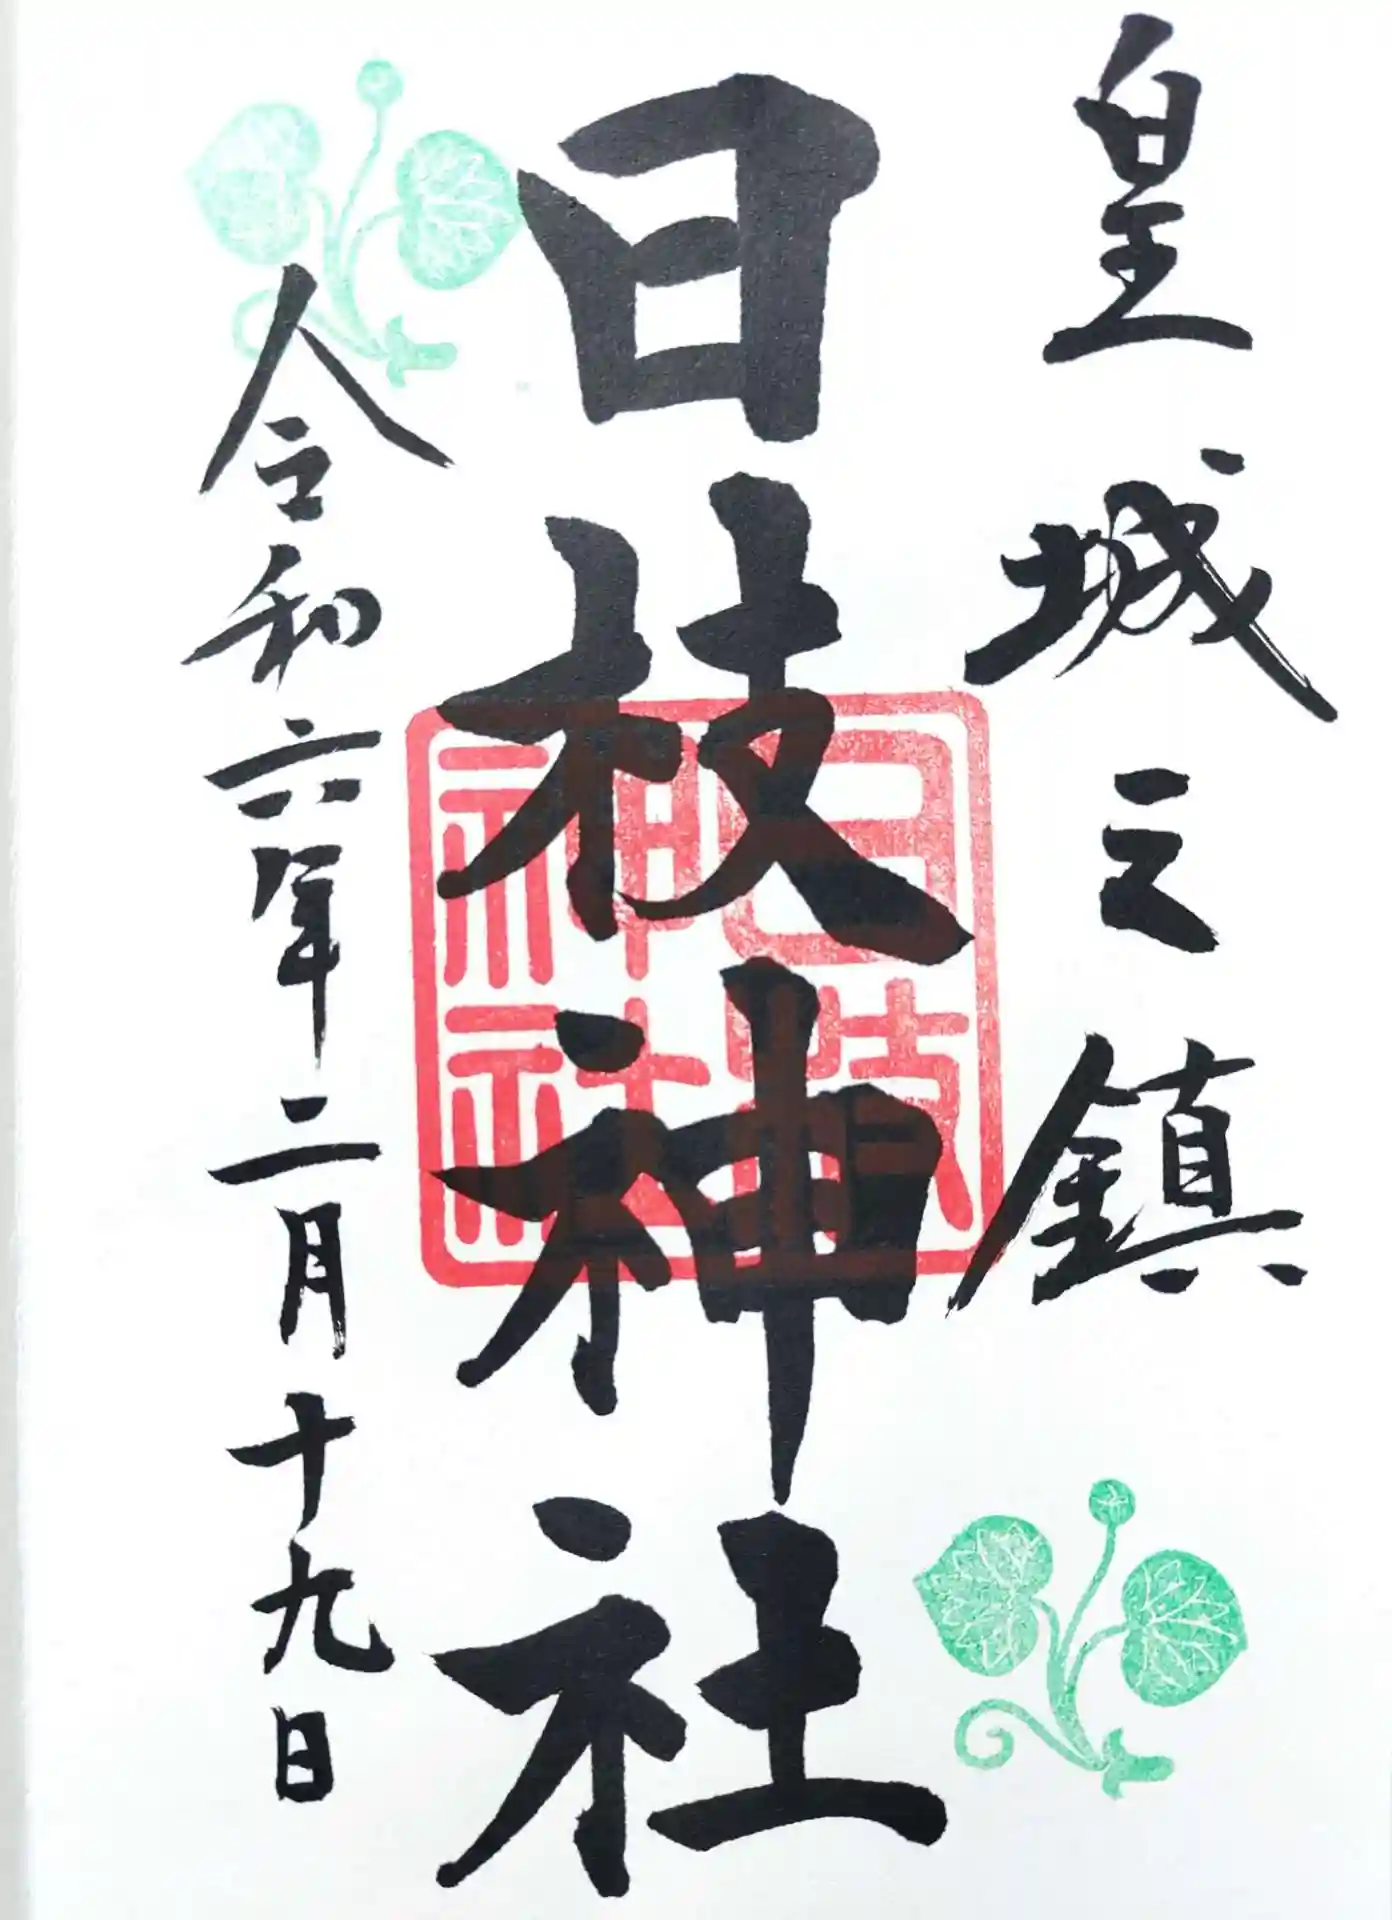 皇城之鎮
日枝神社
日枝神社
令和六年二月十九日